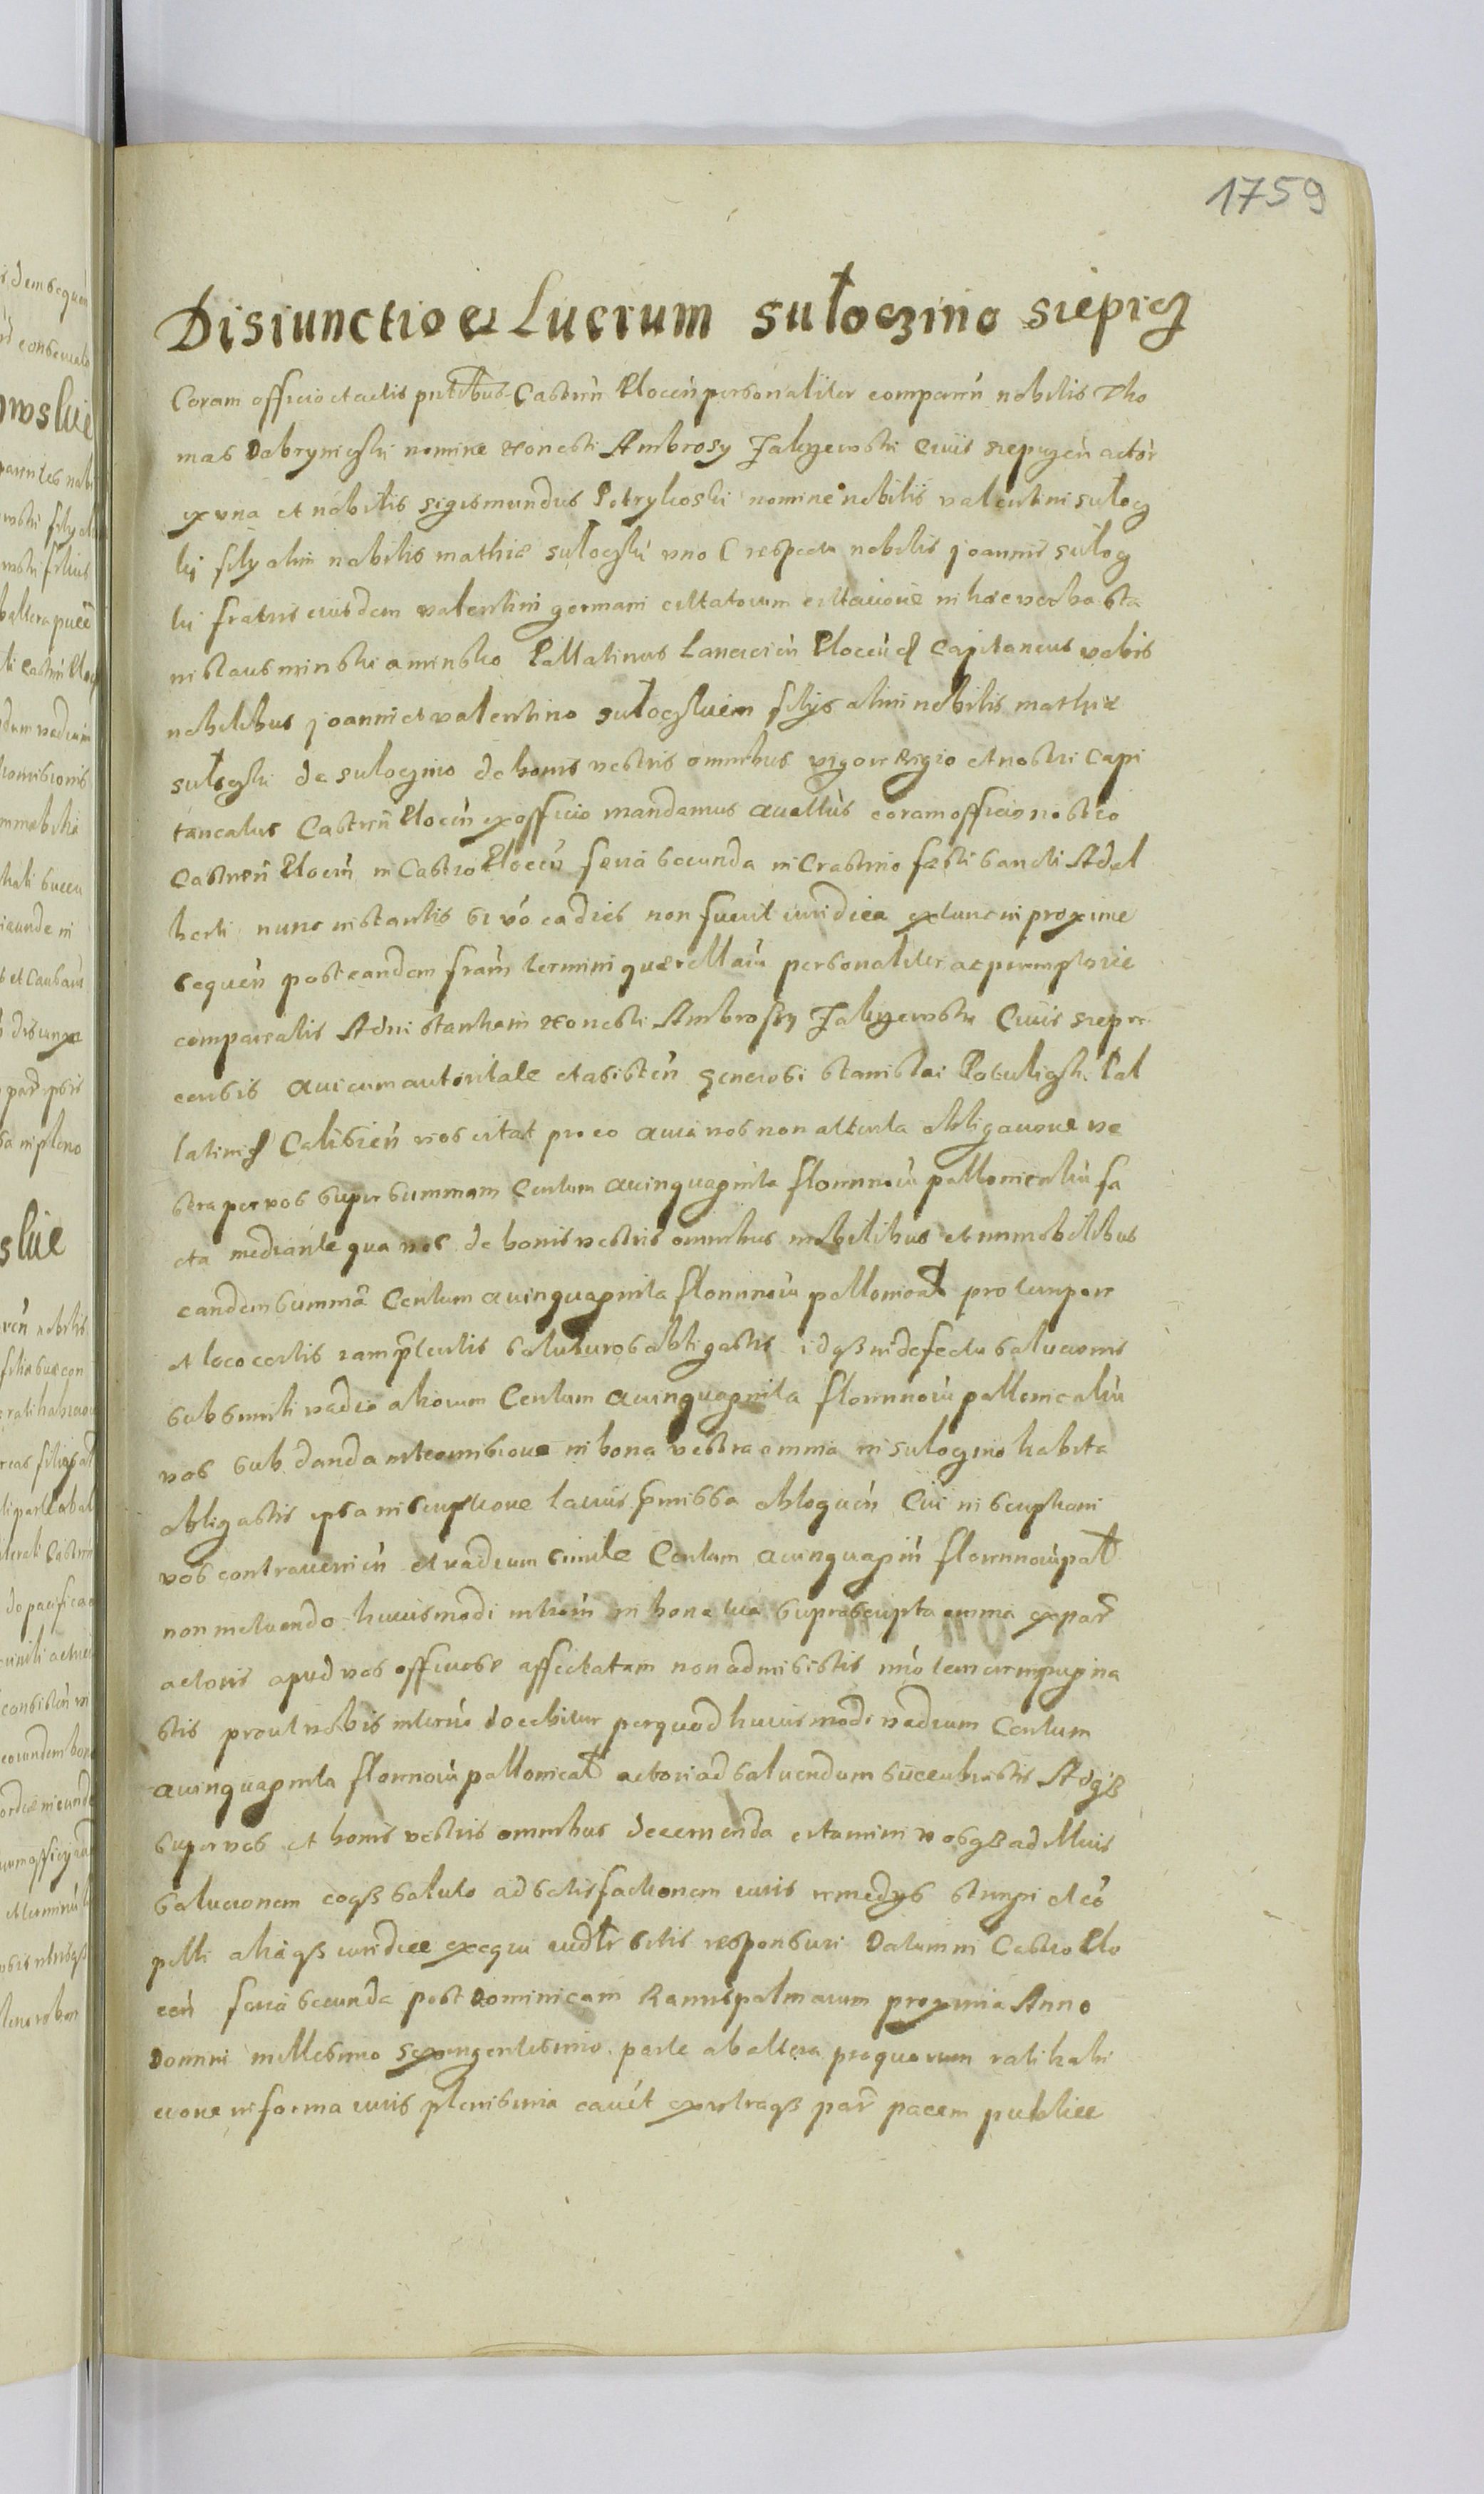 1759
Disiunctio et Lucrum sułoczino siepicz
Coram officio et actis pntibus Castrn Plocen personaliter comparen nobilis Tho
mas Dobrynieczki nomine Honesti Ambrosy Jakyewski Civis siepicen actor
ex una et nobilis sigismundus Petrykoski nomine nobilis valentini sułocz
ki fily olim nobilis mathiæ sułoczki uno C respectu nobilis joannis sułocz
ki fratris eiusdem valentini germani citatorum citacione in hæc verba sta
nislaus minski a minsko Pallatinus Lancicien Plocen q Capitaneus vobis
nobilibus joanni et valentino sułoczkiem filys olim nobilis mathiæ
sułoczki de suloczino de bonis vestris omnibus vigore Regio et nostri Capi
taneatus Castren Plocen ex officio mandamus quattus coram officio nostro
Castren Plocen in Castro Plocen feria secunda in Crastino festi sancti Adal
berti nunc instantis si vo ea dies non fuerit iuridica extunc in proxime
sequen post eandem fram termini quærellaru personaliter ac peremptorie
compareatis Ad instantiam Honesti Ambrosy Jakyewski Civis siepic
censis qui cum autoritate et asisten generosi stanislai Pal
latini q Calisien vos citat pro eo quia vos non attenta obligacione ve
stra per vos super summam Centum quinquaginta florenoru pollonicaliu fa
cta mediante qua vos de bonis vestris omnibus mobilibus et immobilibus
eandem summa Centum quinquaginta florenoru pollonical pro tempore
et loco certis iam pteritis soluturos obligastis idqz in defectu solucionis
sub simili vadio aliorum Centum quinquaginta florenoru pollonicaliu
vos sub danda intromisione in bona vestra omnia in sulogino habita
obligastis ipsa inscriptione lacius pmissa obloquen Cui inscriptioni
vos contravenien et vadium simile Centum quinquagin florenoru pol
non metuendo huiusmodi introm in bona via suprascripta omnia ex par
actoris apud vos officiose affectatam non admisistis imo temere impugna
stis prout vobis interius docebitur per quod huiusmodi vadium Centum
quinquaginta florenoru pollonical actori ad soluendum succubuistis Adqz
super vos et bonis vestris omnibus decernenda citamini vosqz ad illius
solucionem eoqz soluto ad satisfactionem iuris remedys stringi et co
pelli aliaqz iuridice exequi iudlr sitis responsuri Datum in Castro Plo
cen feria secunda post Dominicam Ramispalmarum proxima Anno
Domini millesimo sexingentesimo parte ab altera pro quorum ratihabi
cione in forma iuris plenisima cavit ex utraqz par pacem publice